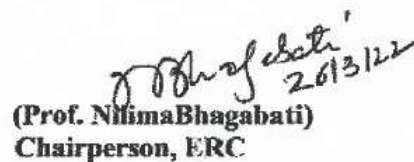 N Bhagabati
26/3/22
(Prof. NilimaBhagabati)
Chairperson, ERC